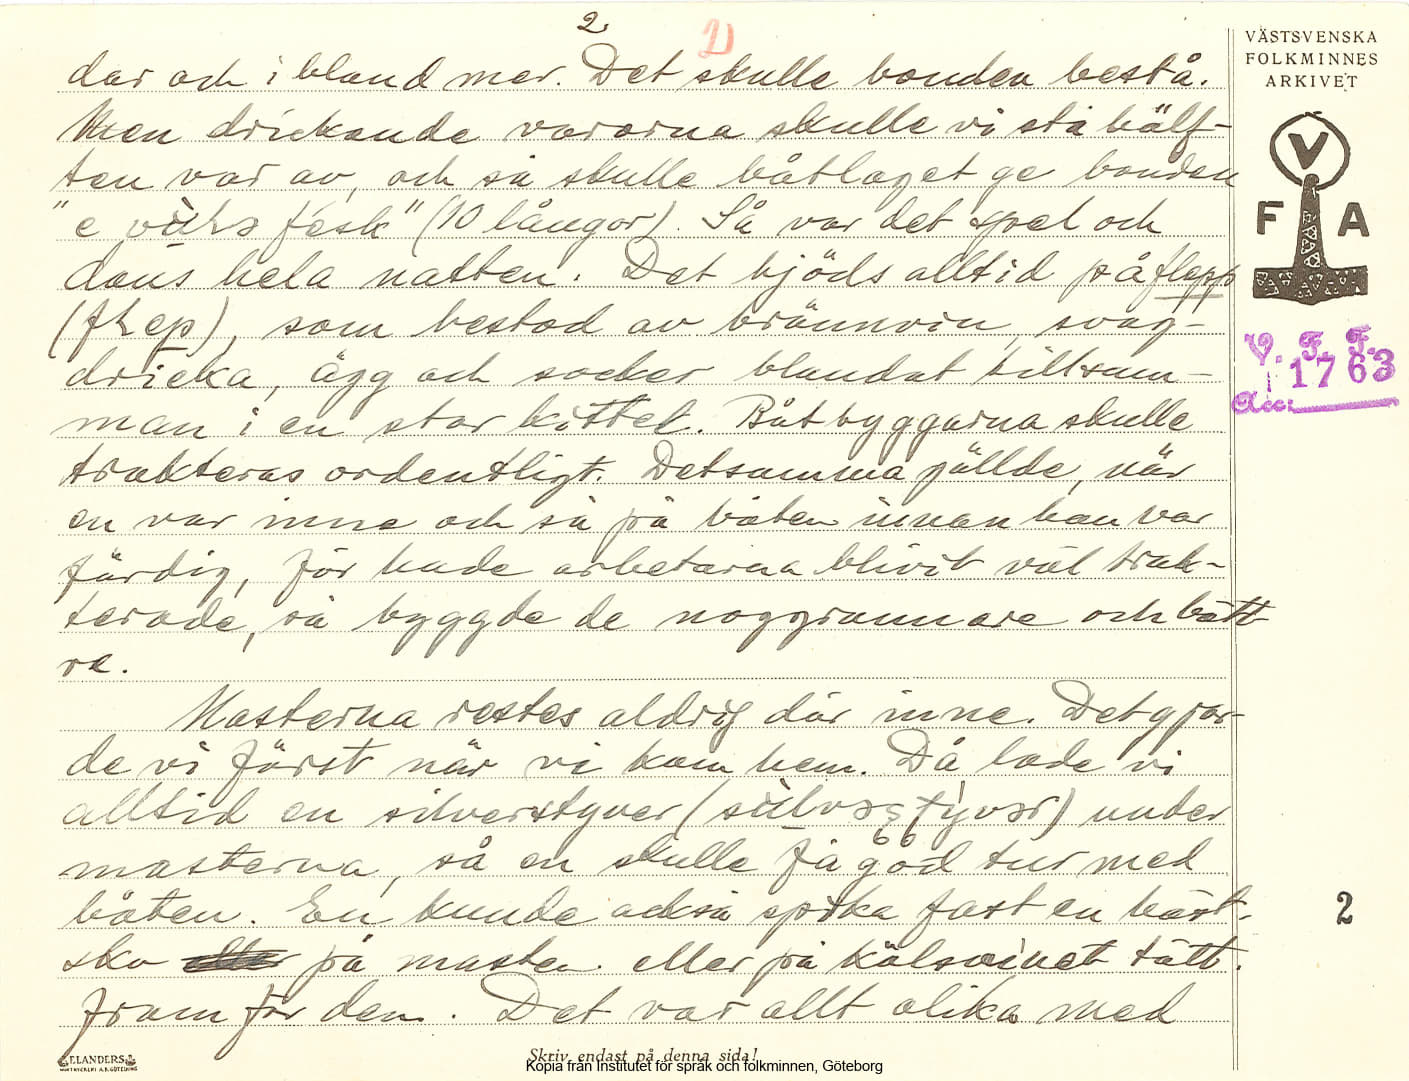 2
2)
VÄSTSVENSKA
FOLKMINNES
ARKIVET
V
F A
V. F. F.
1763
Acc:
dar och i bland mer. Det skulle bonden bestå.
Men drickande varorna skulle vi stå hälf-
ten var av, och så skulle båtlaget ge bonden
"e fesk" (10 långor). Så var det spel och
dans hela natten. Det bjöds alltid på flepp
(flep), som bestod av brännvin, svag-
dricka, ägg och socker blandat tillsam-
man i en stor kittel. Båtbyggarna skulle
trakteras ordentligt. Detsamma gällde, när
en var inne och så på båten innan han var
färdig, för hade arbetarna blivit väl trak-
terade, så byggde de noggrannare och bätt
re.
Masterna restes aldrig där inne. Det gjor-
de vi först när vi kom hem. Då lade vi
alltid en silverstyver ( ) under
masterna, så en skulle få god tur med
båten. En kunde också spika fast en häst-
sko på masten eller på kölsvinet tätt
fram för den. Det var allt olika med
2
ELANDERS
Skriv endast på denna sida!
Kopia från Institutet för språk och folkminnen, Göteborg